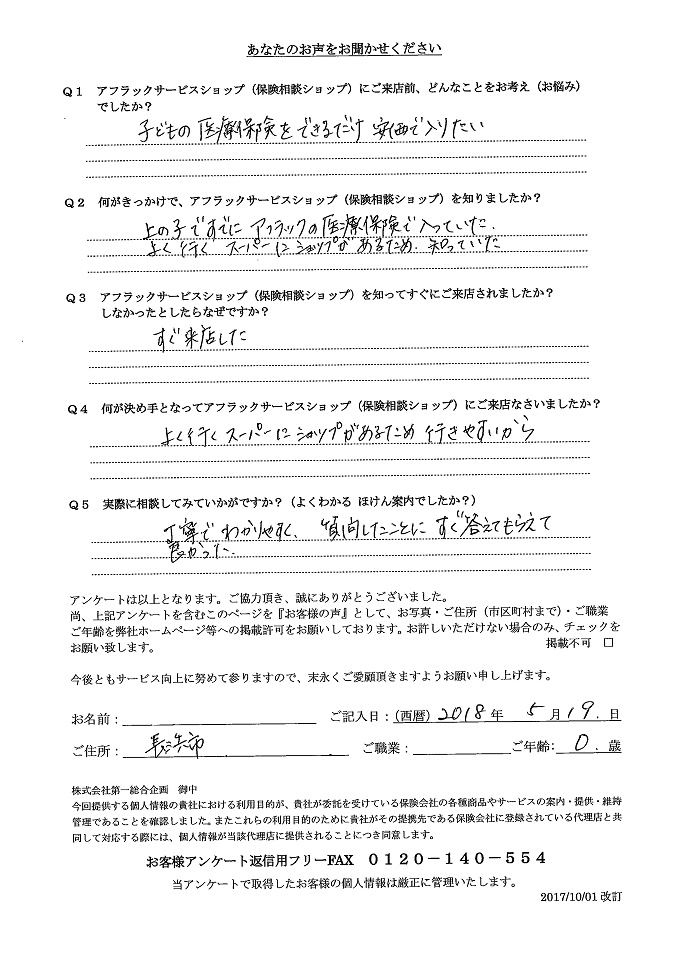 あなたのお声をお聞かせください
Q1 アフラックサービスショップ（保険相談ショップ）にご来店前、どんなことをお考え（お悩み）
でしたか？
子どもの医療保険をできるだけ安価で入りたい
Q2 何がきっかけで、アフラックサービスショップ（保険相談ショップ）を知りましたか？
上の子ですでにアフラックの医療保険で入っていた.
よく行くスーパーにショップがあるため.知っていた
Q3 アフラックサービスショップ（保険相談ショップ）を知ってすぐにご来店されましたか？
しなかったとしたらなぜですか？
すぐ来店した
Q4 何が決め手となってアフラックサービスショップ（保険相談ショップ）にご来店なさいましたか？
よく行くスーパーにショップがあるため行きやすいから
Q5 実際に相談してみていかがですか？（よくわかる ほけん案内でしたか？）
丁寧でわかりやすく、質問したことにすぐ答えてもらえて
良かった.
アンケートは以上となります。ご協力頂き、誠にありがとうございました。
尚、上記アンケートを含むこのページを『お客様の声』として、お写真・ご住所（市区町村まで）・ご職業
ご年齢を弊社ホームページ等への掲載許可をお願いしております。お許しいただけない場合のみ、チェックを
お願い致します。 掲載不可 □
今後ともサービス向上に努めて参りますので、末永くご愛顧頂きますようお願い申し上げます。
お名前： ご記入日：（西暦）2018年 5月19.日
ご住所： 長浜市 ご職業： ご年齢： 0.歳
株式会社第一総合企画 御中
今回提供する個人情報の貴社における利用目的が、貴社が委託を受けている保険会社の各種商品やサービスの案内・提供・維持
管理であることを確認しました。またこれらの利用目的のために貴社がその提携先である保険会社に登録されている代理店と共
同して対応する際には、個人情報が当該代理店に提供されることにつき同意します。
お客様アンケート返信用フリーFAX 0120－140－554
当アンケートで取得したお客様の個人情報は厳正に管理いたします。
2017/10/01 改訂